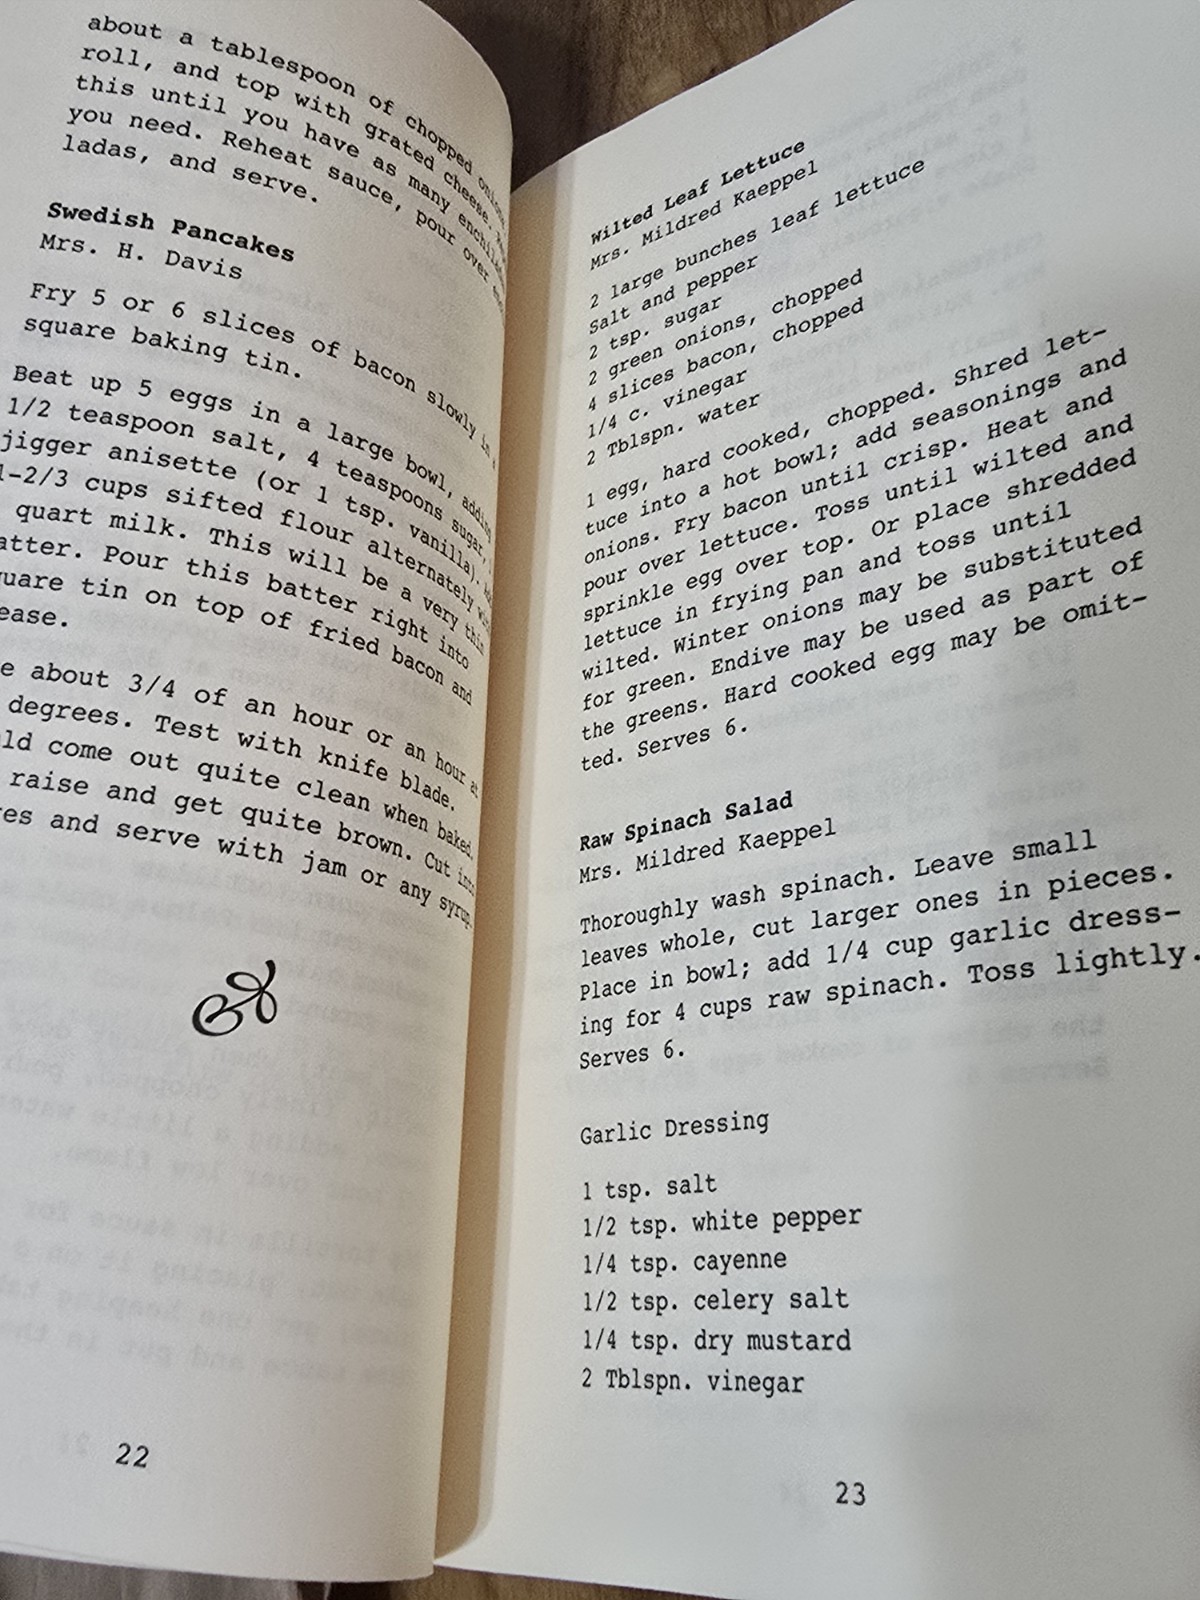 about a tablespoon of chopped onions
roll, and top with grated cheese.
this until you have as many enchiladas
you need. Reheat sauce, pour over
ladas, and serve.
Swedish Pancakes
Mrs. H. Davis
Fry 5 or 6 slices of bacon slowly in a
square baking tin.
Beat up 5 eggs in a large bowl, adding
1/2 teaspoon salt, 4 teaspoons sugar,
jigger anisette (or 1 tsp. vanilla).
1-2/3 cups sifted flour alternately with
quart milk. This will be a very thin
atter. Pour this batter right into
uare tin on top of fried bacon and
ease.
e about 3/4 of an hour or an hour at
degrees. Test with knife blade.
ld come out quite clean when baked.
raise and get quite brown. Cut into
es and serve with jam or any syrup.
22
Wilted Leaf Lettuce
Mrs. Mildred Kaeppel
2 large bunches leaf lettuce
Salt and pepper
2 tsp. sugar
2 green onions, chopped
4 slices bacon, chopped
1/4 c. vinegar
2 Tblspn. water
1 egg, hard cooked, chopped. Shred let-
tuce into a hot bowl; add seasonings and
onions. Fry bacon until crisp. Heat and
pour over lettuce. Toss until wilted and
sprinkle egg over top. Or place shredded
lettuce in frying pan and toss until
wilted. Winter onions may be substituted
for green. Endive may be used as part of
the greens. Hard cooked egg may be omit-
ted. Serves 6.
Raw Spinach Salad
Mrs. Mildred Kaeppel
Thoroughly wash spinach. Leave small
leaves whole, cut larger ones in pieces.
Place in bowl; add 1/4 cup garlic dress-
ing for 4 cups raw spinach. Toss lightly.
Serves 6.
Garlic Dressing
1 tsp. salt
1/2 tsp. white pepper
1/4 tsp. cayenne
1/2 tsp. celery salt
1/4 tsp. dry mustard
2 Tblspn. vinegar
23